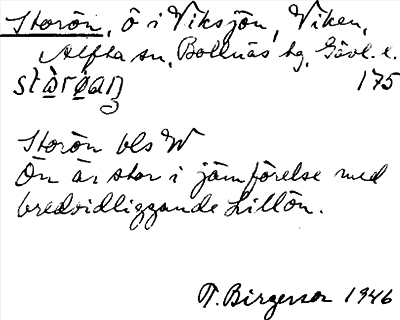 Storön, ö i Viksjön, Viken,
Alfta sn, Bollnäs tg, Gävl. l.
175
Storön bls W
Ön är stor i jämförelse med
bredvidliggande Lillön.
T. Birgersson 1946